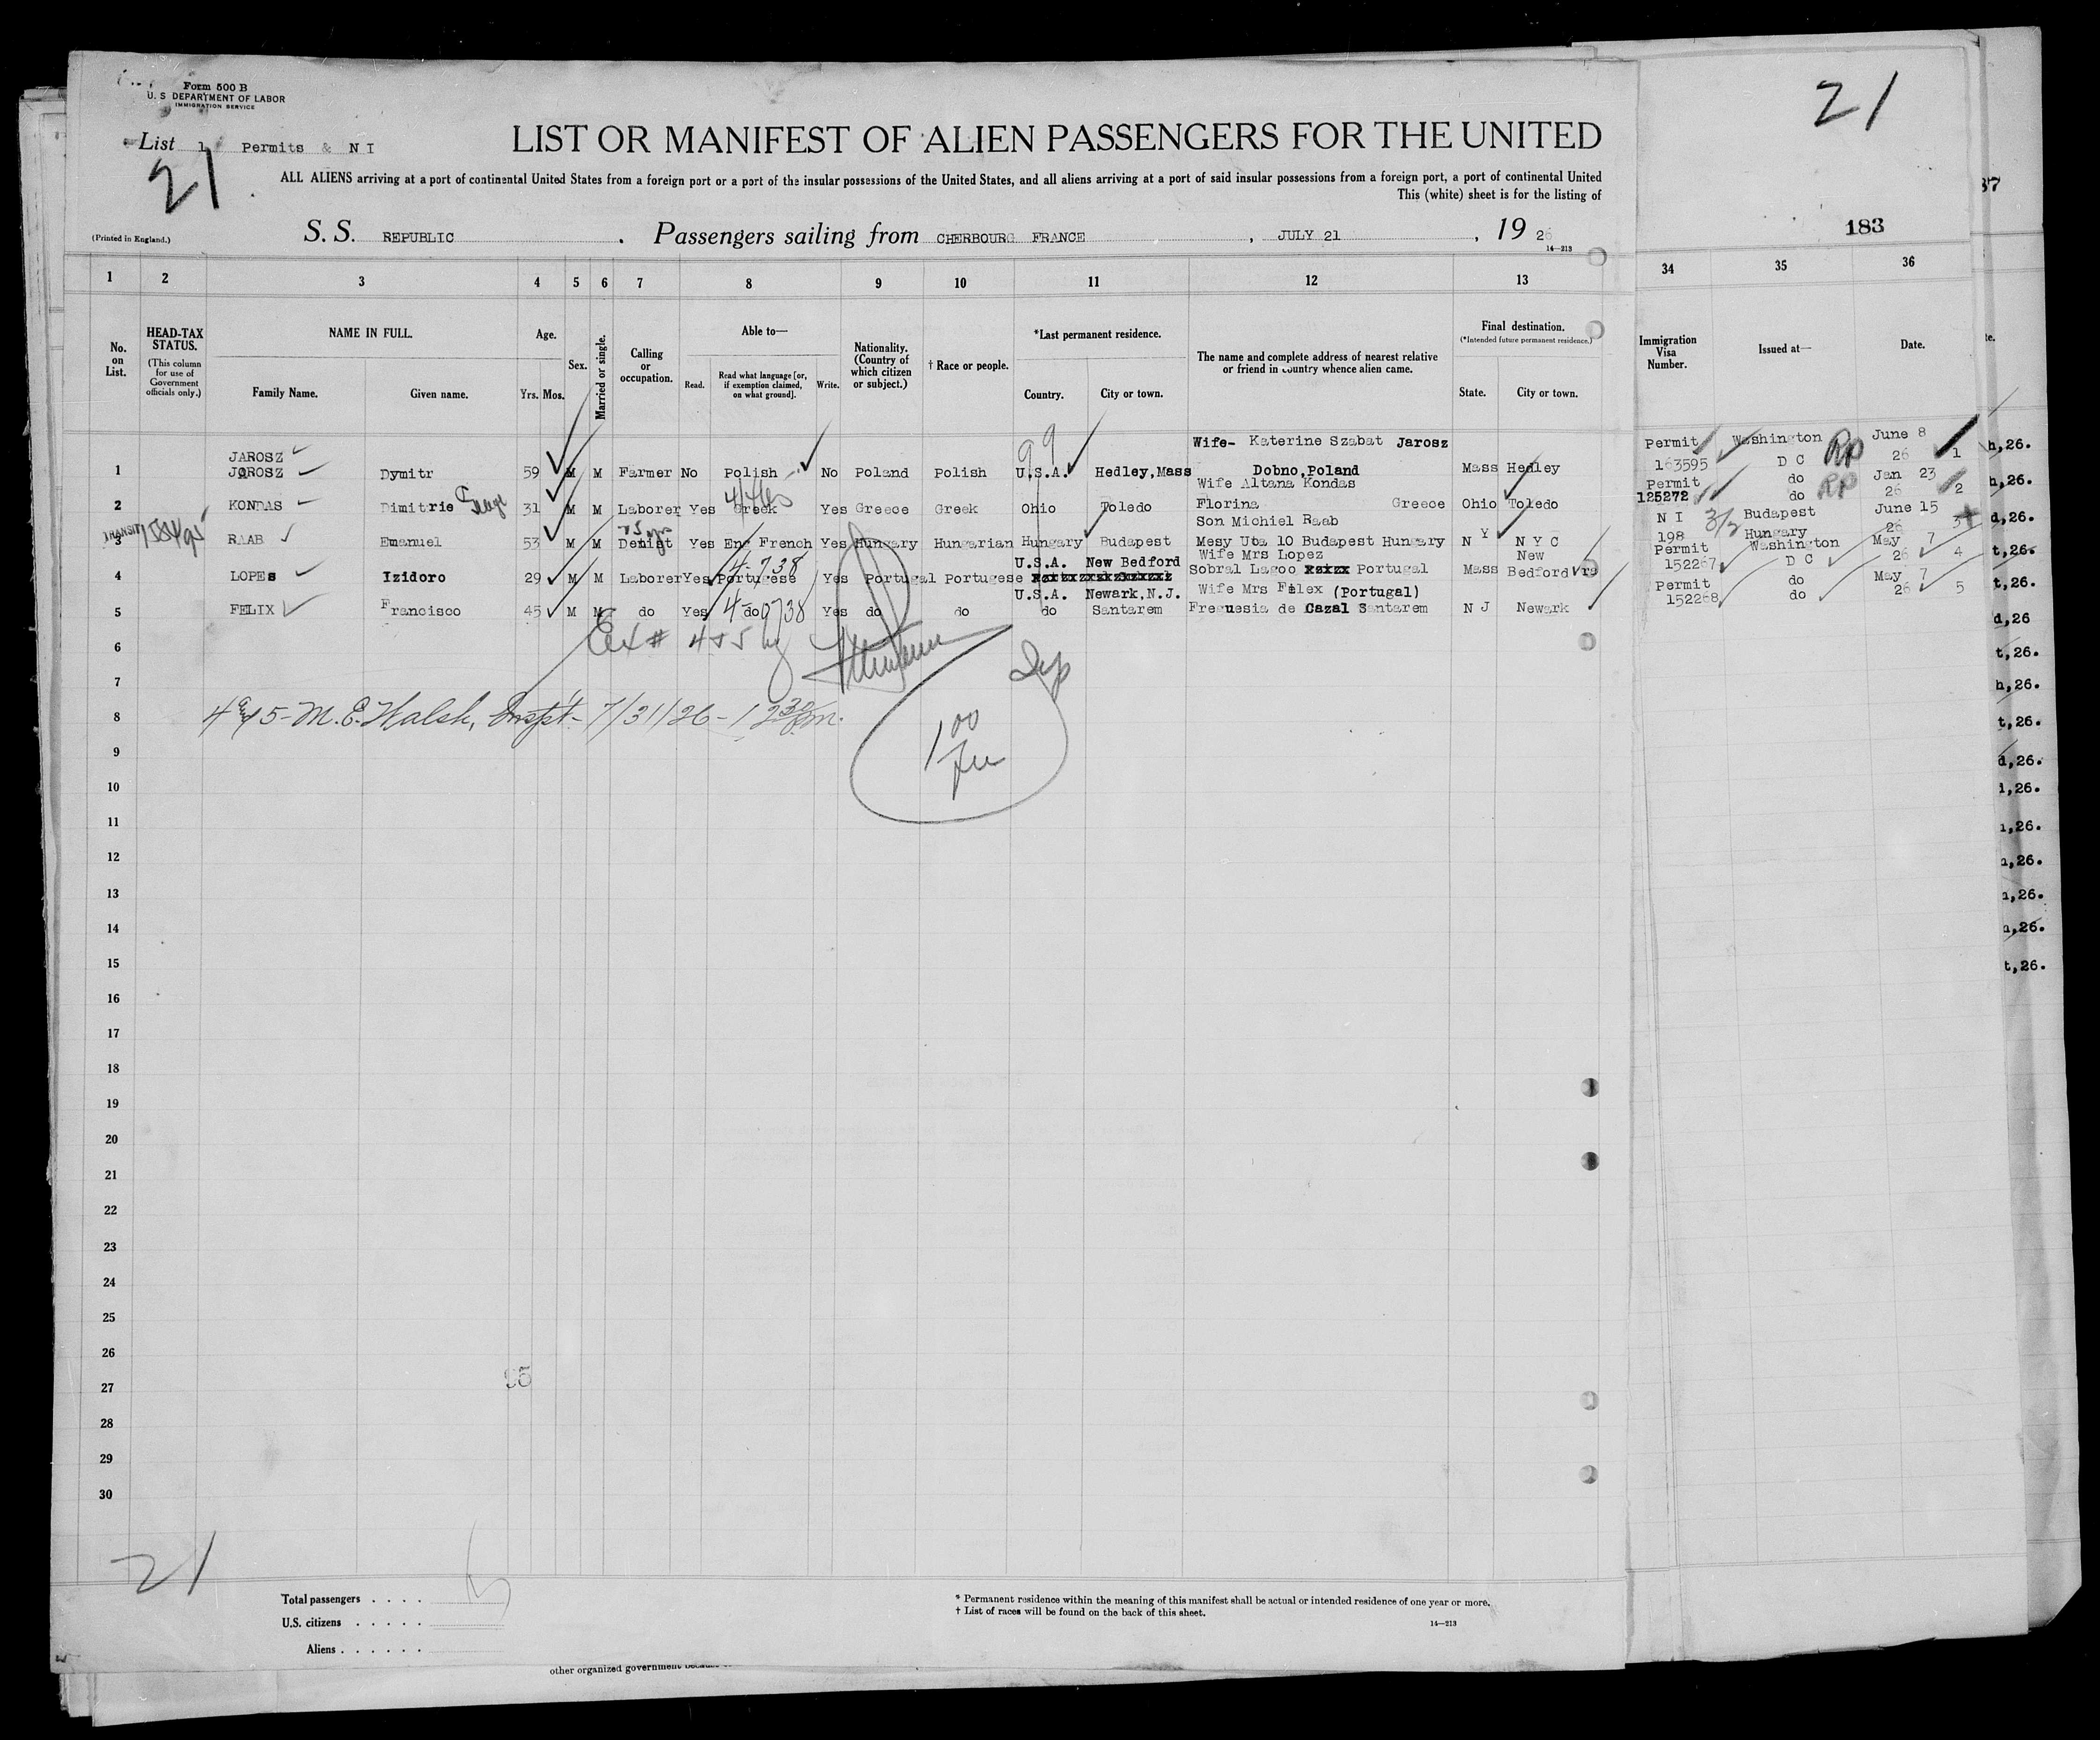 Form 500 B
U. S DEPARTMENT OF LABOR
IMMIGRATION SERVICE
List 1 Permits & N I
21
21
LIST OR MANIFEST OF ALIEN PASSENGERS FOR THE UNITED
ALL ALIENS arriving at a port of continental United States from a foreign port or a port of the insular possessions of the United States, and all aliens arriving at a port of said insular possessions from a foreign port, a port of continental United
This (white) sheet is for the listing of
37
(Printed in England.)
S. S. REPUBLIC . Passengers sailing from CHERBOURG FRANCE , JULY 21 , 19 26
14—213
183
1 2 3 4 5 6 7 8 9 10 11 12 13 34 35 36
No. on List.
HEAD-TAX STATUS.
(This column for use of Government officials only.)
NAME IN FULL.
Family Name. Given name.
Age.
Yrs. Mos.
Sex.
Married or single.
Calling or occupation.
Able to—
Read. Read what language [or, if exemption claimed, on what ground]. Write.
Nationality. (Country of which citizen or subject.)
† Race or people.
*Last permanent residence.
Country. City or town.
The name and complete address of nearest relative or friend in country whence alien came.
Final destination.
(*Intended future permanent residence.)
State. City or town.
Immigration Visa Number.
Issued at—
Date.
te.
99
JAROSZ Wife- Katerine Szabat Jarosz Permit Washington RP June 8
1 JAROSZ Dymitr 59 M M Farmer No Polish No Poland Polish U.S.A. Hedley,Mass Dobno,Poland Mass Hedley 163595 D C 26 1
Wife Altana Kondas Permit do RP Jan 23
2 KONDAS Dimitrie 31 M M Laborer Yes Greek Yes Greece Greek Ohio Toledo Florina Greece Ohio Toledo 125272 do 26 2
Son Michiel Raab N I 3/2 Budapest June 15
TRANSIT
3 RAAB Emanuel 53 M M Dentist Yes Eng French Yes Hungary Hungarian Hungary Budapest Mesy Uta 10 Budapest Hungary N Y N Y C 198 Hungary 26 3
4-738 U.S.A. New Bedford Wife Mrs Lopez New Permit Washington May 7
4 LOPEs Izidoro 29 M M Laborer Yes Portugese Yes Portugal Portugese Sobral Lagoo Portugal Mass Bedford 152267 D C 26 4
U.S.A. Newark,N.J. Wife Mrs Filex (Portugal) Permit do May 7
5 FELIX Francisco 45 M M do Yes do Yes do do do Santarem Freguesia de Cazal Santarem N J Newark 152268 do 26 5
6
7
8 4 & 5 - M. E. Walsh, Inspt. - 7/31/26 - 12 30 pm.
100
9
10
11
12
13
14
15
16
17
18
19
20
21
22
23
24
25
26
27
28
29
30
h,26.
h,26.
d,26.
t,26.
t,26.
d,26
t,26.
h,26.
t,26.
d,26.
t,26.
95
21
Total passengers . . . . 5
U.S. citizens . . . . .
Aliens . . . . . .
* Permanent residence within the meaning of this manifest shall be actual or intended residence of one year or more.
† List of races will be found on the back of this sheet.
14—213
other organized government because